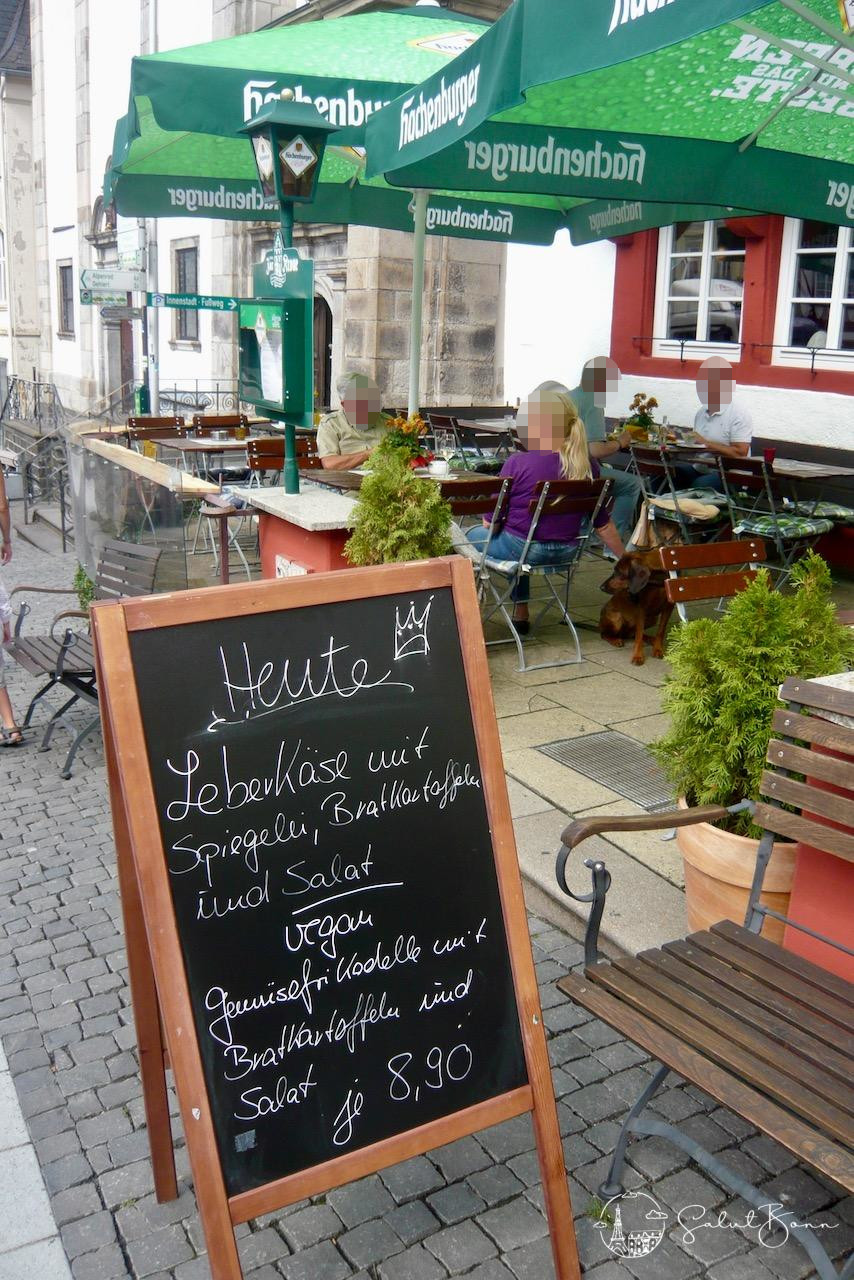 Hachenburger
Hachenburger
Hachenburger
Hachenburger
Hachenburger
Hachenburger
Alpenrod
Gehlert
Innenstadt - Fußweg
Heute
Leberkäse mit
Spiegelei, Bratkartoffeln
und Salat
vegan
Gemüsefrikadelle mit
Bratkartoffeln und
Salat je 8,90
SalutBonn